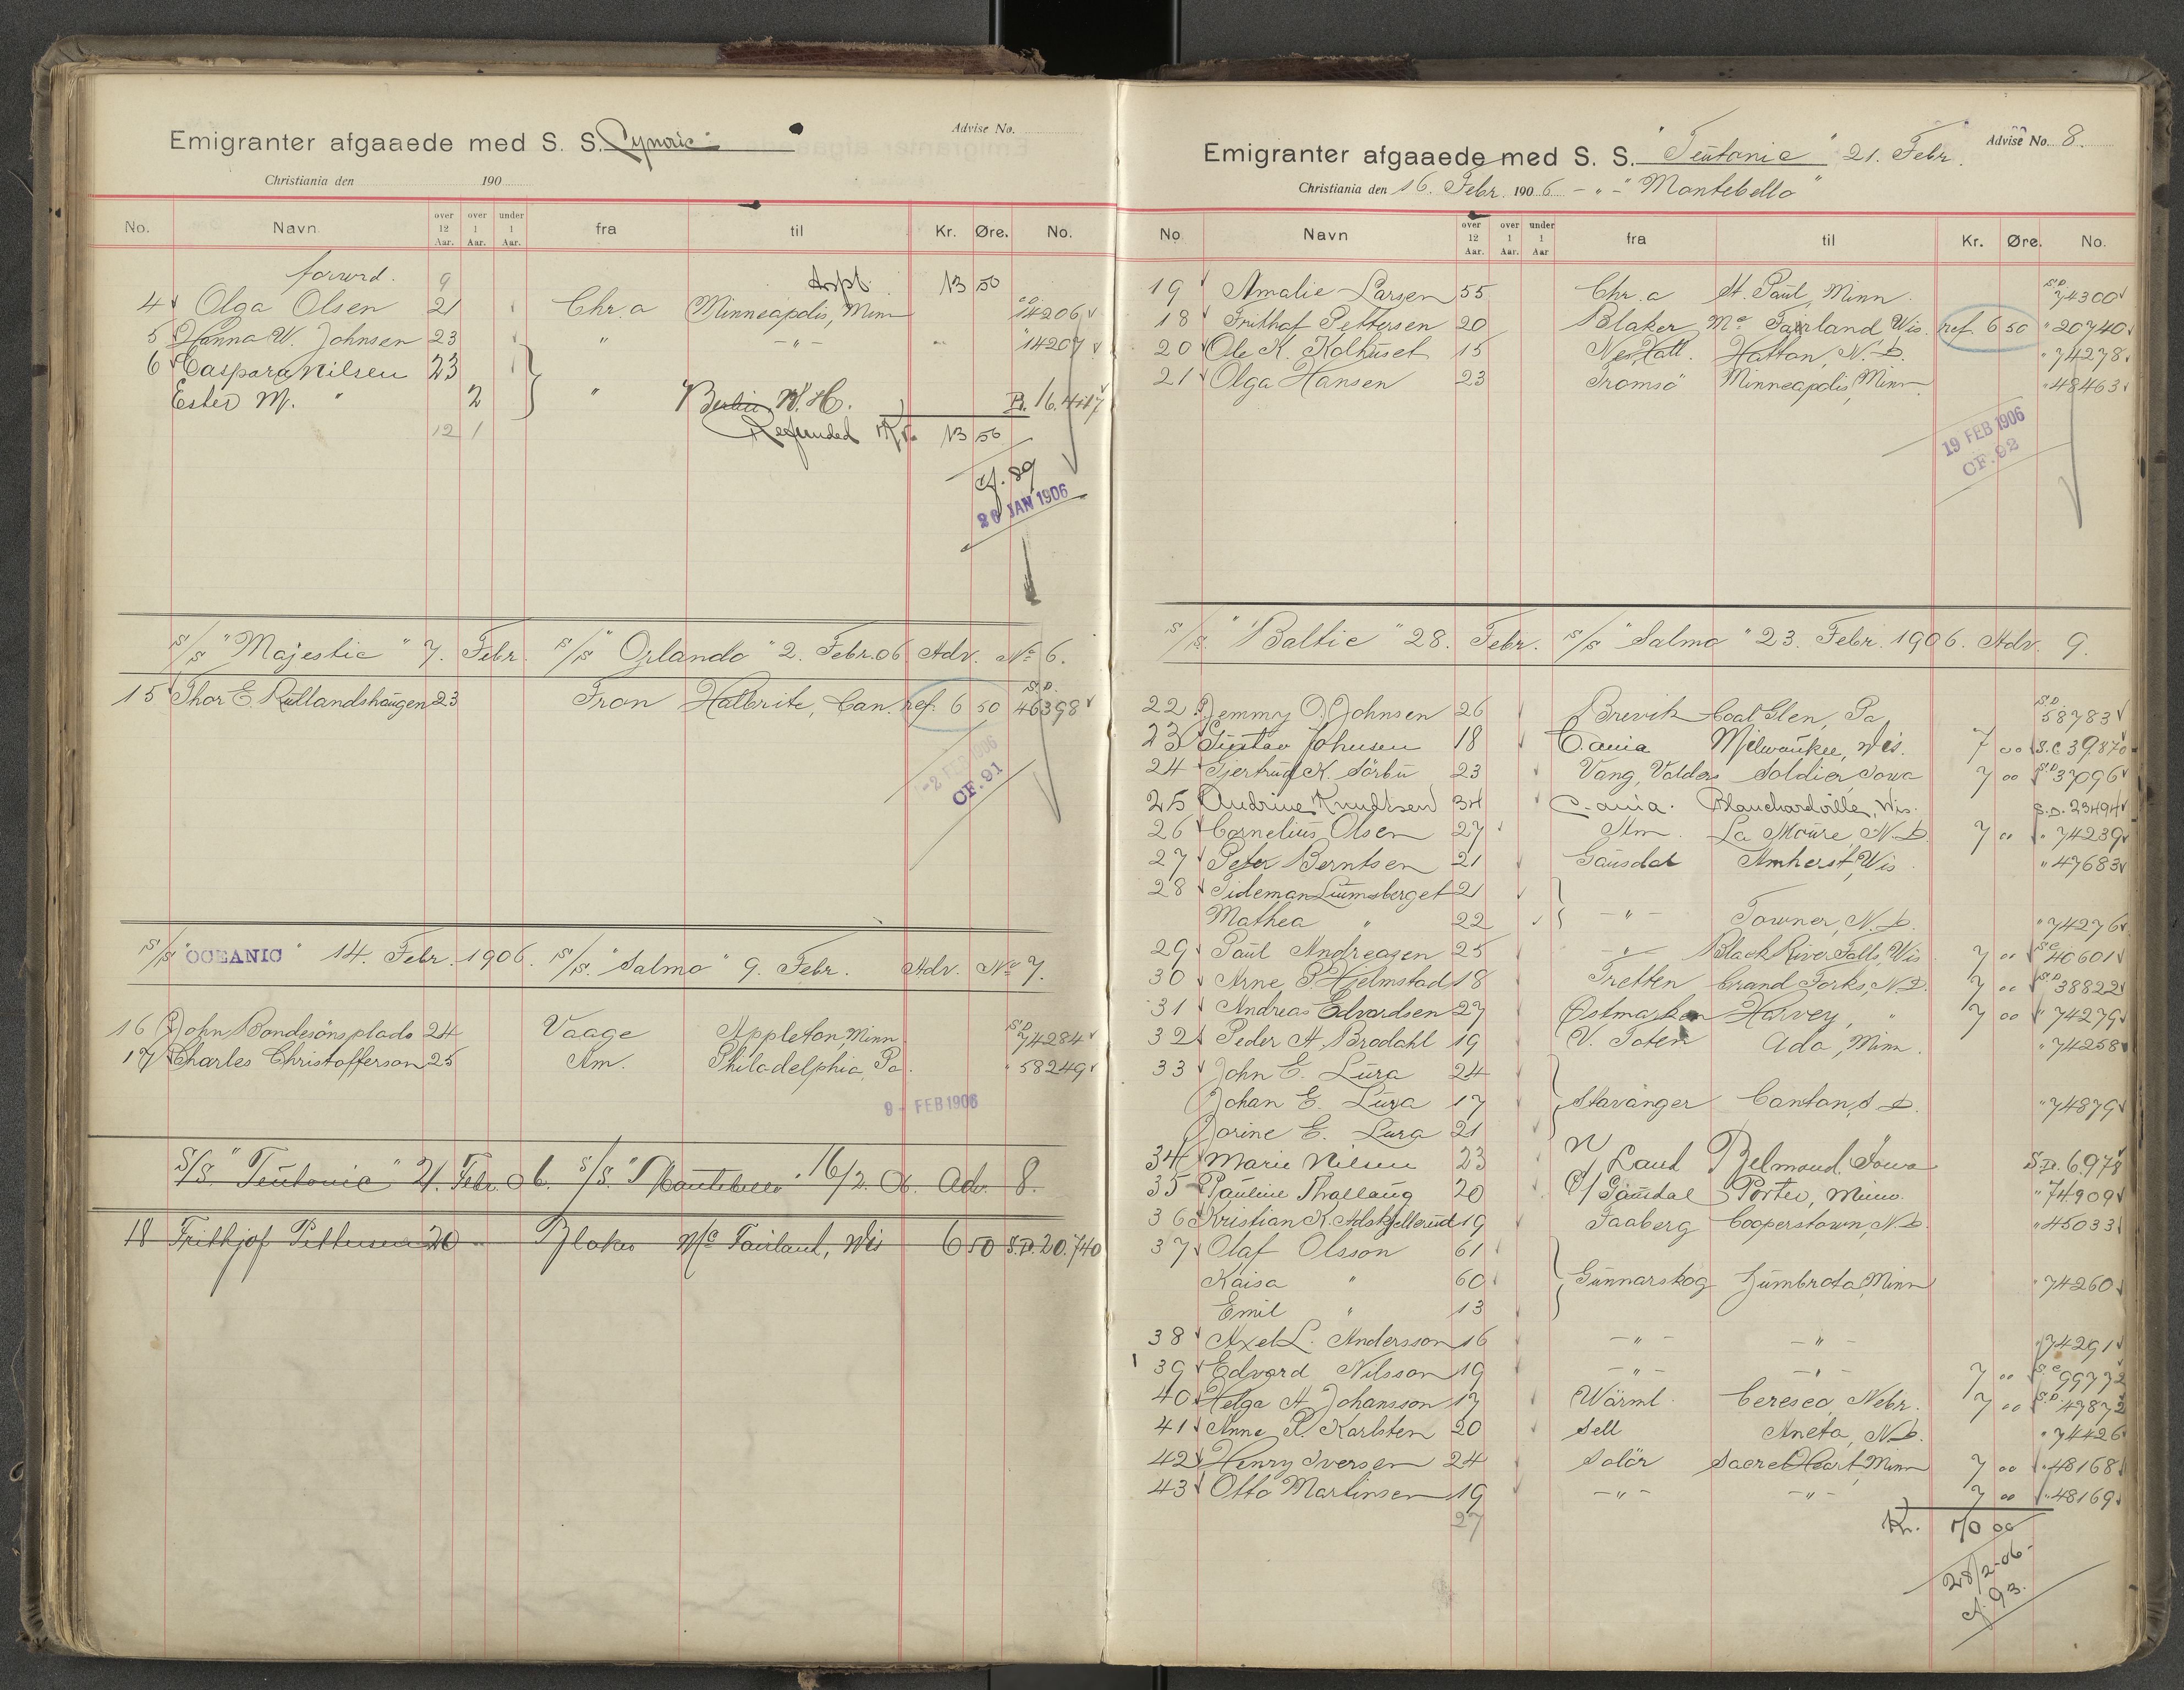 Emigranter afgaaede med S. S. Cymric "
Advise No.
Christiania den 190
No. Navn over 12 Aar. over 1 Aar. under 1 Aar. fra til Kr. Øre. No.
forwrd. 9 13 50
4 Olga Olsen 21 Chr.a Minneapolis, Minn 14206
5 Hanna W. Johnsen 23 " - " - " 14207
6 Caspara Nilsen 23
Ester M. " 2 " Berlin N. H.
12 1 Refunded Kr. 13 50
cf. 89
26 JAN 1906
S/S "Majestic" 7. Febr. S/S "Orlando" 2. Febr. 06 Adv. No 6.
15 Thor E. Rutlandshaugen 23 Fron Halbrite, Can. ref. 6 50 S.D. 46398
-2 FEB 1906
CF. 91
S/S "OCEANIC" 14. Febr. 1906. S/S. "Salmo" 9. Febr. Adv. No 7.
16 John Bondesönsplads 24 Vaage Appleton Minn S.D. 74284
17 Charles Christofferson 25 Am. Philadelphia, Pa. " 58249
9 - FEB 1906
S/S. "Teutonic" 21. Febr. 06. S/S. "Montebello" 16/2. 06. Adv. 8.
18 Frithjof Pettersen 20 Blaker Mc Fairland, Wis 6 50 S.D. 20.740
Emigranter afgaaede med S. S. "Teutonic" 21. Febr.
Advise No. 8.
Christiania den 16. Febr. 1906 - " - "Montebello"
No Navn over 12 Aar. over 1 Aar. under 1 Aar fra til Kr. Øre. No.
19 Amalie Larsen 55 Chr.a St. Paul, Minn. S.D. 74300
18 Frithof Pettersen 20 Blaker Mc Fairland Wis. ref. 6 50 " 20740
20 Ole K. Kolhuset 15 Nes, Hall. Hatton, N. D. " 74278
21 Olga Hansen 23 Tromsö Minneapolis, Minn " 48463
19 FEB 1906
CF. 92
S/S. "Baltic" 28. Febr. S/S "Salmo" 23. Febr. 1906. Adv. 9.
22 Jemmy O. Johnsen 26 Brevik Coal Glen, Pa S.D. 58783
23 Gustav Johnsen 18 C.ania Milwaukee, Wis. 7 00 S.C. 39870
24 Gjertrud K. Sörbu 23 Vang, Valders Soldier Iowa 7 00 S.D. 37096
25 Andrine Knudtsen 34 C-ania. Blanchardville, Wis. S.D. 23494
26 Cornelius Olsen 27 Am. La Moure N. D. 7 00 " 74239
27 Peter Berntsen 21 Gausdal Amherst, Wis " 47683
28 Tideman Luumsberget 21
Mathea " 22 - " - Towner, N. D. " 74276
29 Paul Andreasen 25 - " - Black River Falls, Wis 7 00 S.C. 40601
30 Arne P. Hjelmstad 18 Tretten Grand Forks, N. D. 7 00 S.D. 38822
31 Andreas Edvardsen 27 Østmarken Harvey, " 7 00 " 74279
32 Peder A. Brodahl 19 V. Toten Ada, Minn. " 74258
33 John E. Lura 24
Johan E. Lura 17 Stavanger Canton, S. D. " 74879
Jorine E. Lura 21
34 Marie Nilsen 23 N. Land Belmond, Iowa S.D. 6.978
35 Pauline Thallaug 20 Ø/Gausdal Porter, Minn. " 74909
36 Kristian K. Adskjellerud 19 Faaberg Cooperstown, N. D. " 45033
37 Olaf Olsson 61
Kaisa " 60 Gunnarskog Zumbrota, Minn " 74260
Emil " 13
38 Axel L. Andersson 16 - " - - " - " 74291
39 Edvard Nilsson 19 - " - - " - 7 00 S.C. 99772
40 Helga A. Johansson 17 Wärml. Ceresco, Nebr. 7 00 S.D. 47872
41 Anne P. Karlsten 20 Sell Aneta, N. D. " 74426
42 Henry Iversen 24 Solör Sacred Heart, Minn 7 00 " 48168
43 Otto Martinsen 19 - " - - " - 7 00 " 48169
27 Kr. 70 00
28/2-06-
cf. 93.